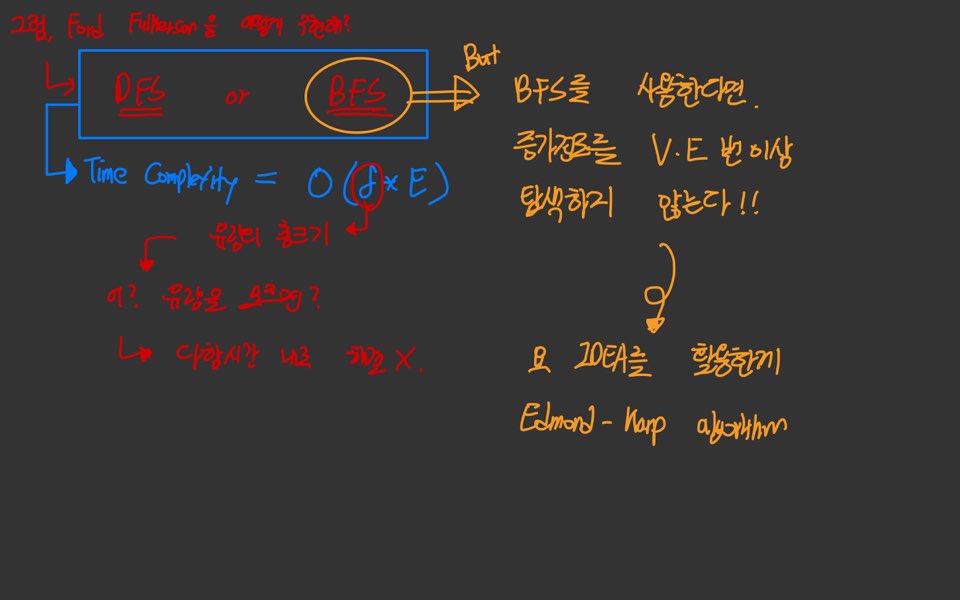 그럼, Ford Fulkerson을 어떻게 구현해?
DFS or BFS
Time Complexity = O(f * E)
유량의 총크기
어? 유량을 모르면?
다항시간 내로 해결 X.
But
BFS를 사용한다면.
증가경로를 V.E 번 이상
탐색하지 않는다!!
요 IDEA를 활용한게
Edmond - Karp algorithm